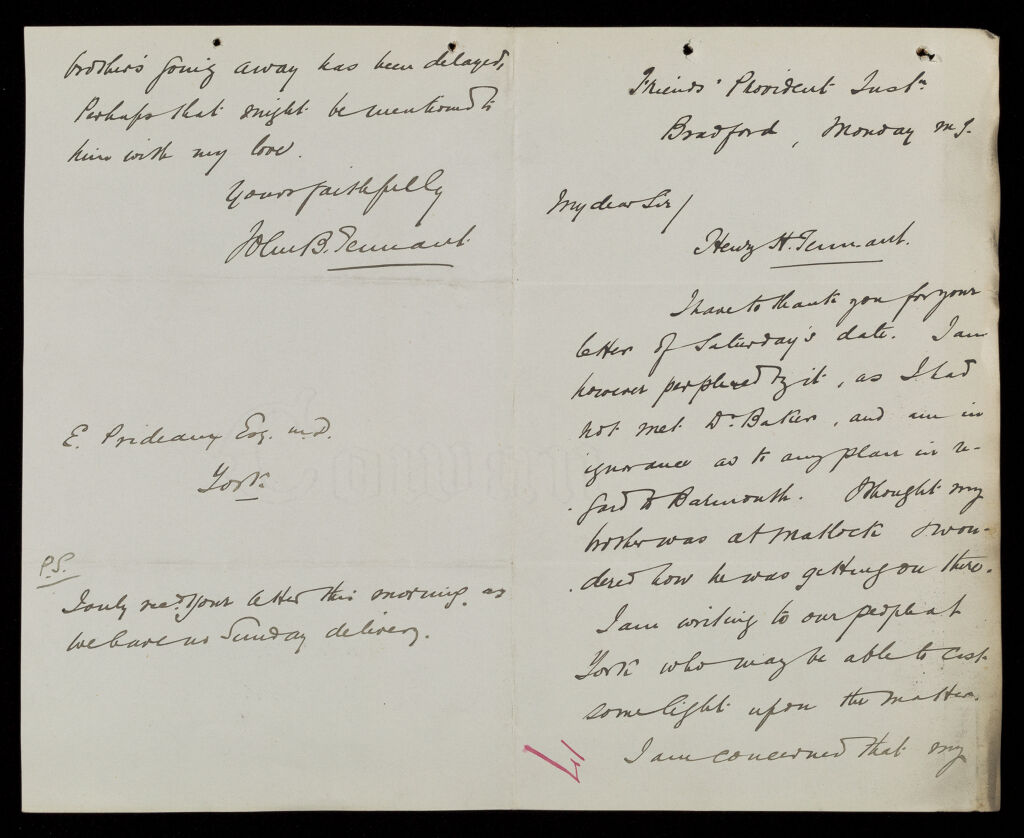 Friends' Provident Instn
Bradford, Monday mg.
My dear Sir/
Henry H. Tennant.
I have to thank you for your
letter of Saturday's date. I am
however perplexed by it, as I had
not met Dr. Baker, and am in
ignorance as to any plan in re-
gard to Barmouth. I thought my
brother was at Matlock & won-
dered how he was getting on there.
I am writing to our people at
York who may be able to cast
some light upon the matter.
I am concerned that my
brother's going away has been delayed,
Perhaps that might be mentioned to
him with my love.
Yours faithfully
John B. Tennant.
E. Prideaux Esq. M.D.
York
P.S.
I only recd. your letter this morning, as
we have no Sunday delivery.